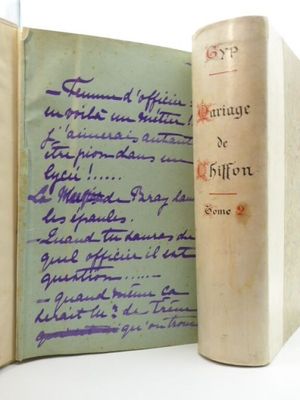 — Femme d'officier :
en voilà un métier !
j'aimerais autant
être pion dans un
lycée !.....
La Mise de Bray dans
les épaules.
— Quand tu sauras de
quel officier il est
question......
— quand même ça
serait le de Trêne
qu'on trouve
GYP
Mariage
de
Chiffon
Tome 2